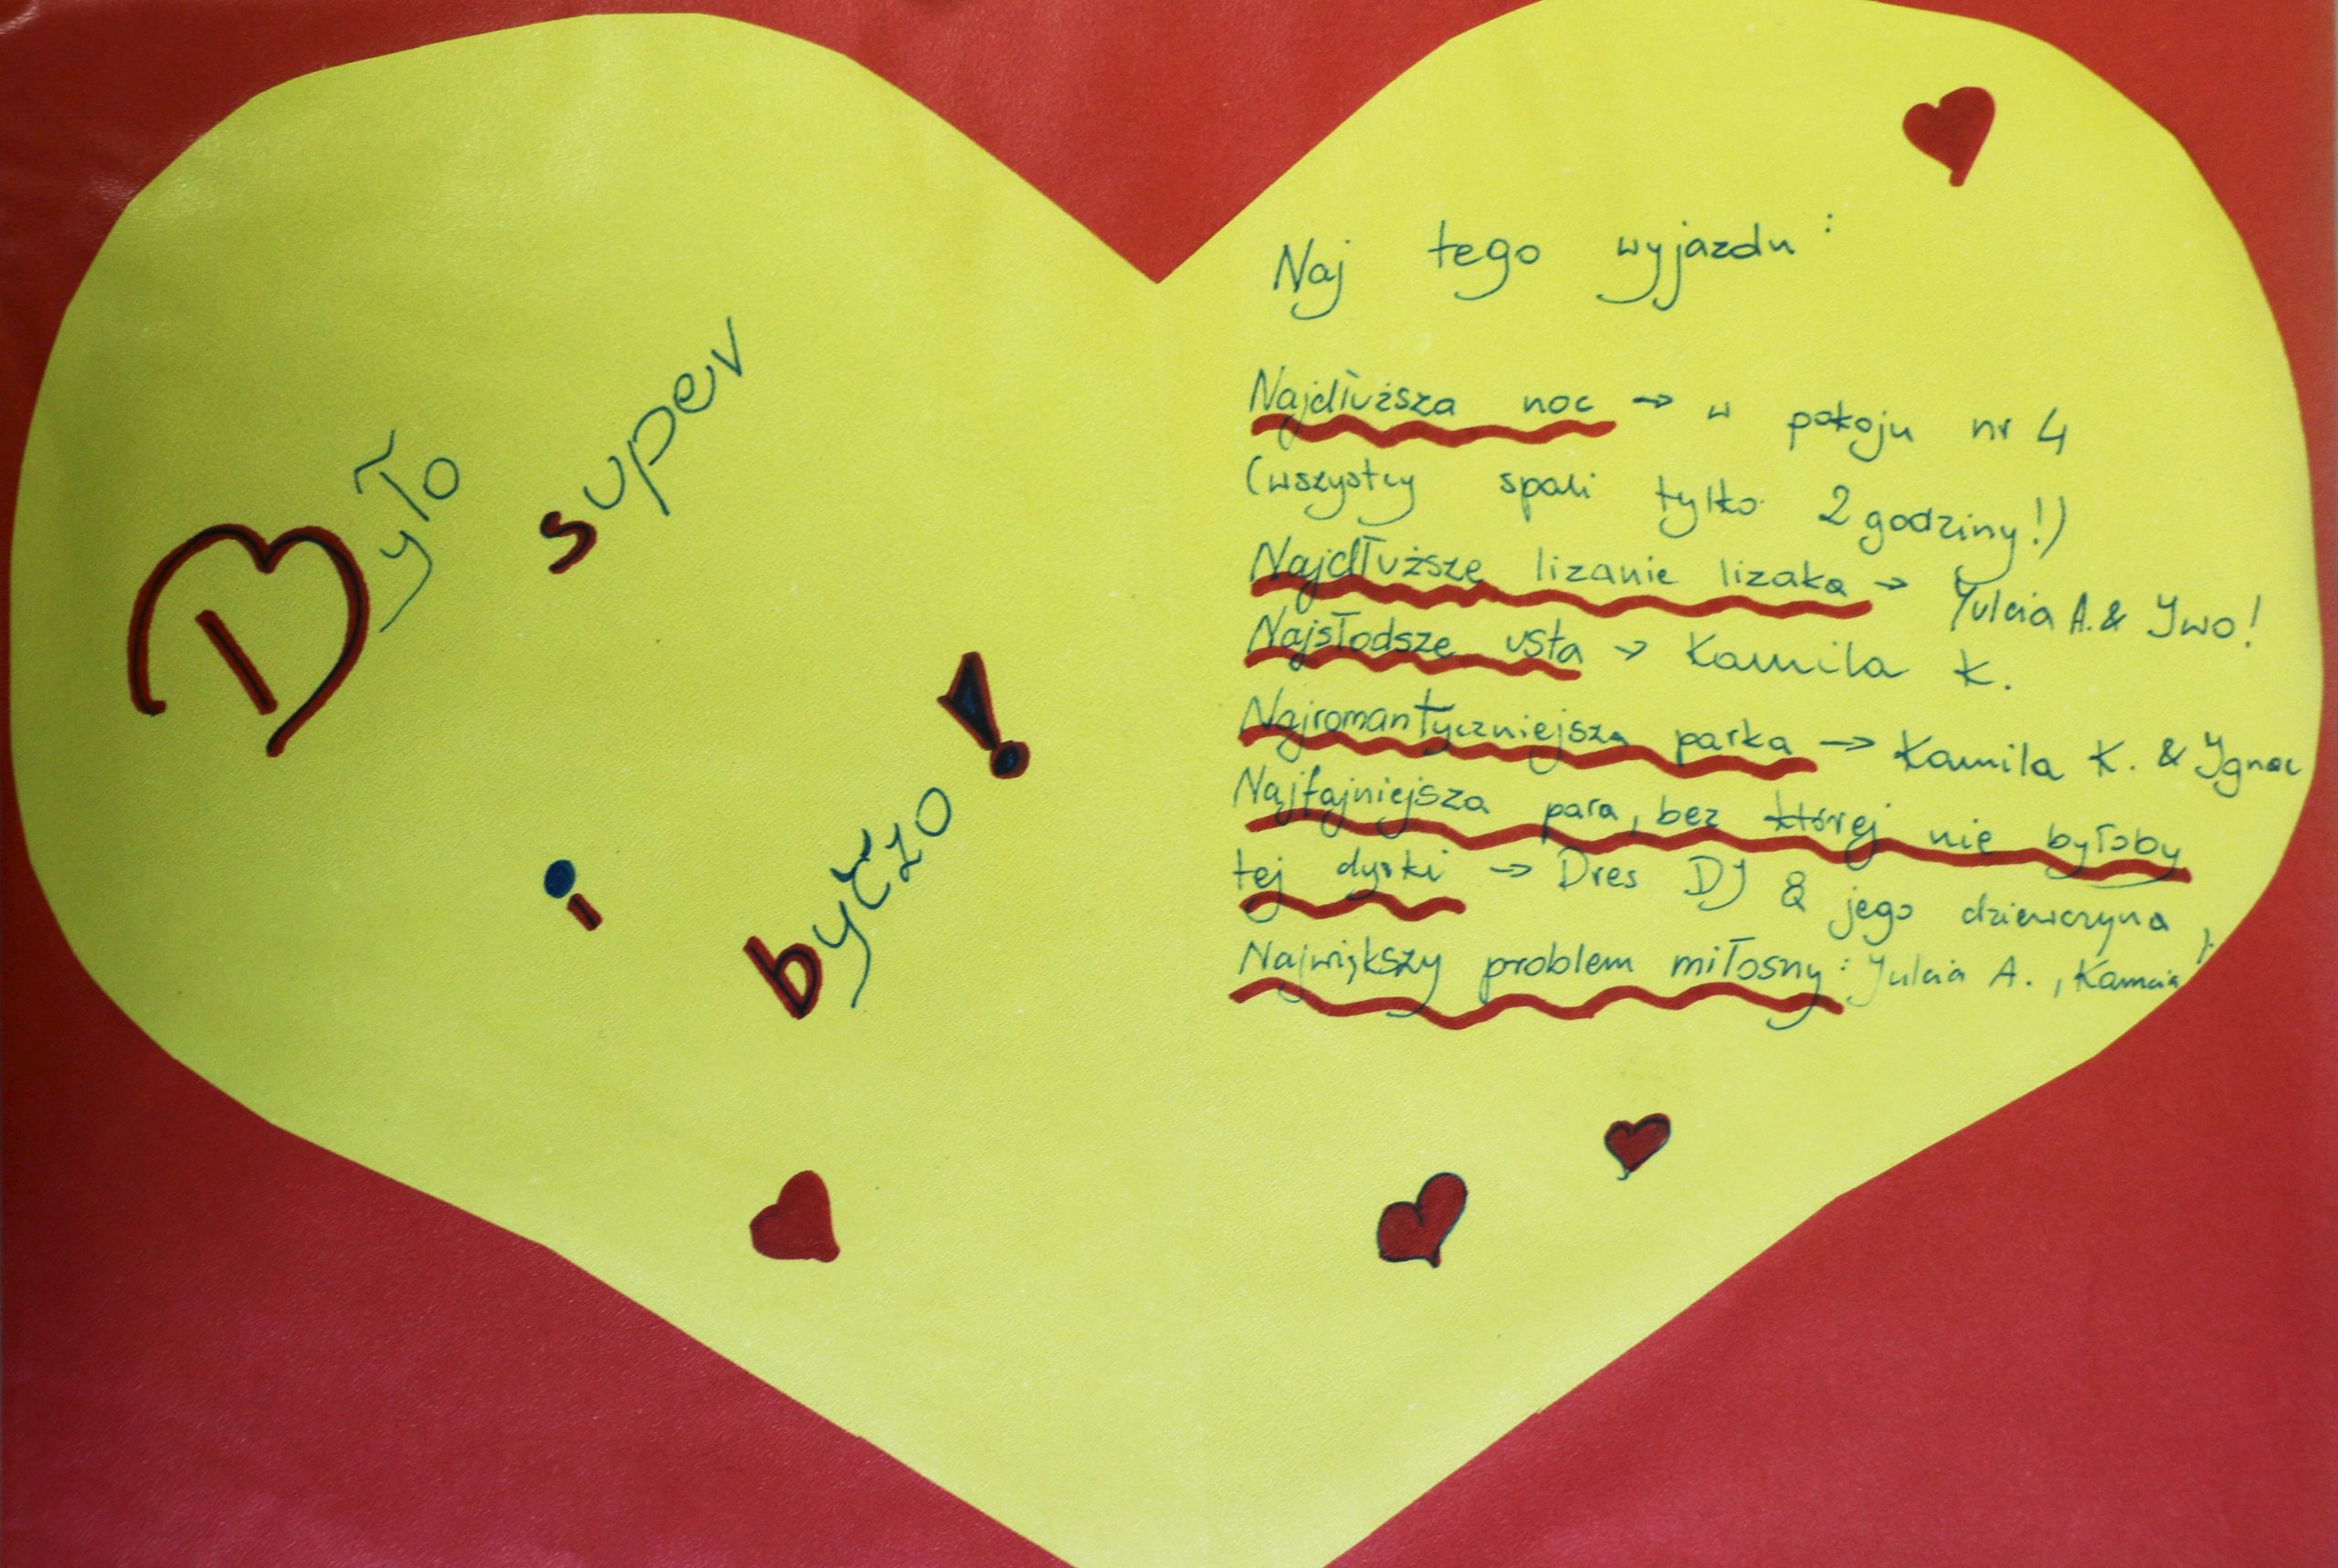 Było
super
i
byczo!
Naj tego wyjazdu:
Najdłuższa noc → w pokoju nr 4
(wszyscy spali tylko 2 godziny!)
Najdłuższe lizanie lizaka → Julcia A. & Iwo!
Najsłodsze usta → Kamila K.
Najromantyczniejsza parka → Kamila K. & Ignac
Najfajniejsza para, bez której nie byłoby
tej dyski → Dres DJ & jego dziewczyna ;
Największy problem miłosny: Julcia A., Kamcia